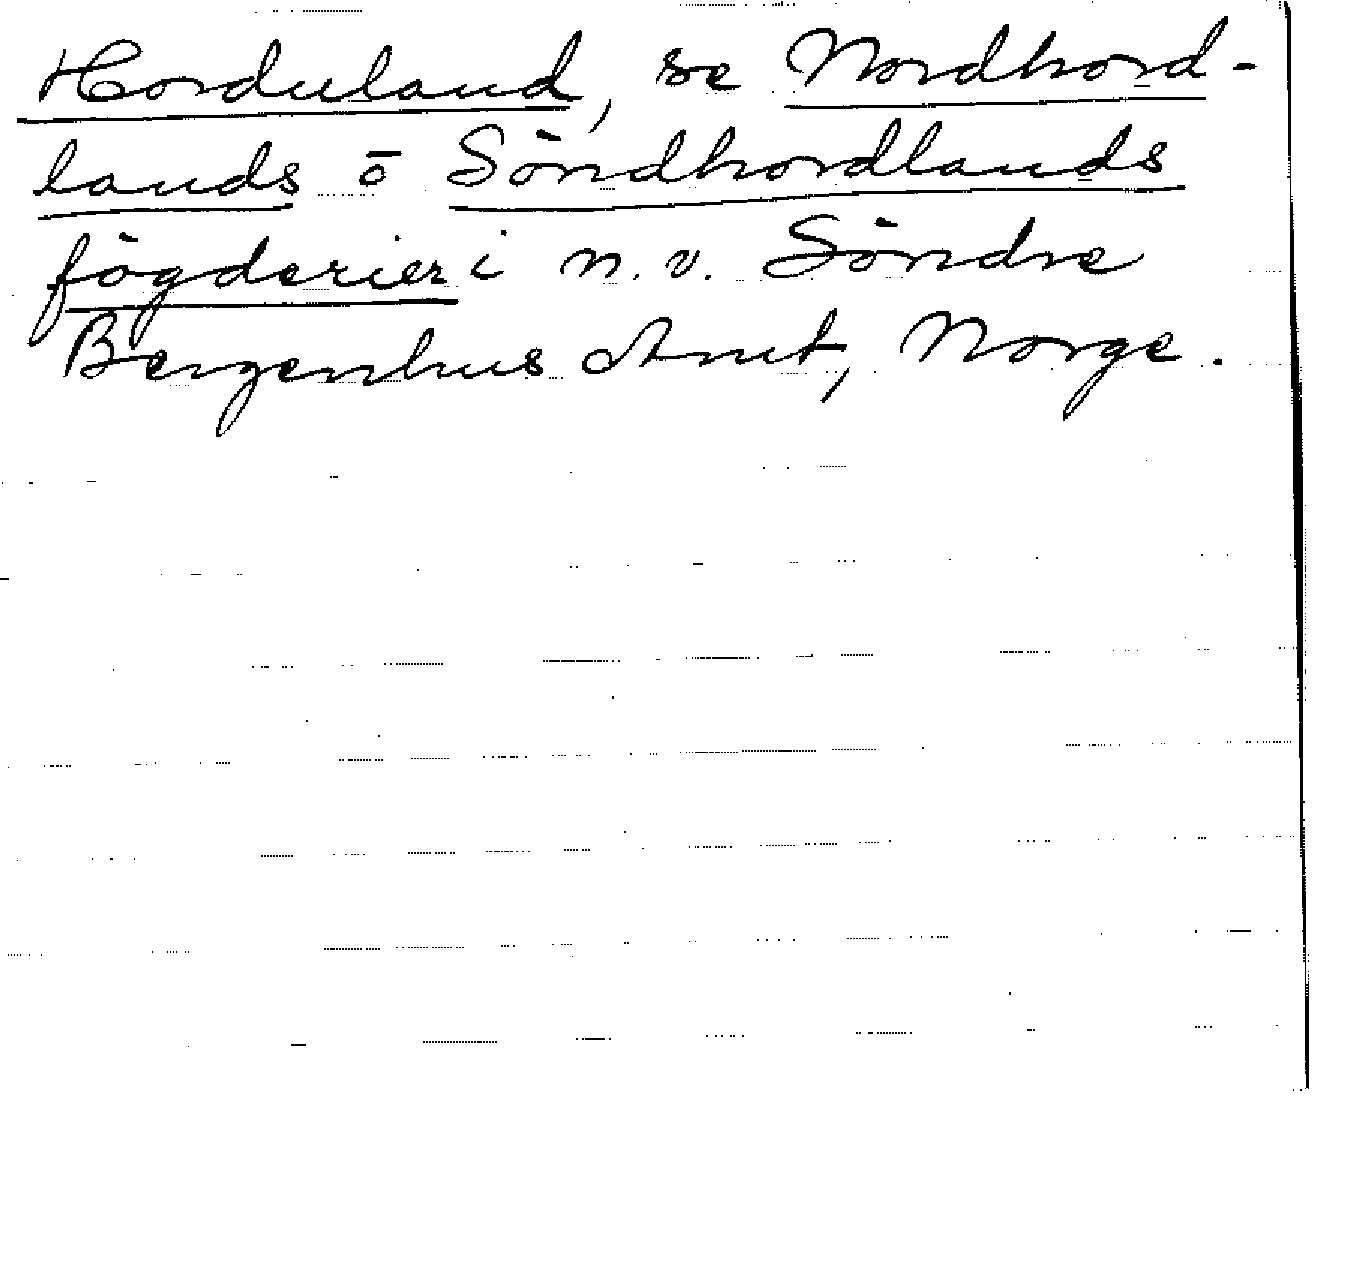 Horduland, se Nordhord-
lands ō Söndhordlands
fögderier i n.v. Söndre
Bergenhus Amt, Norge.